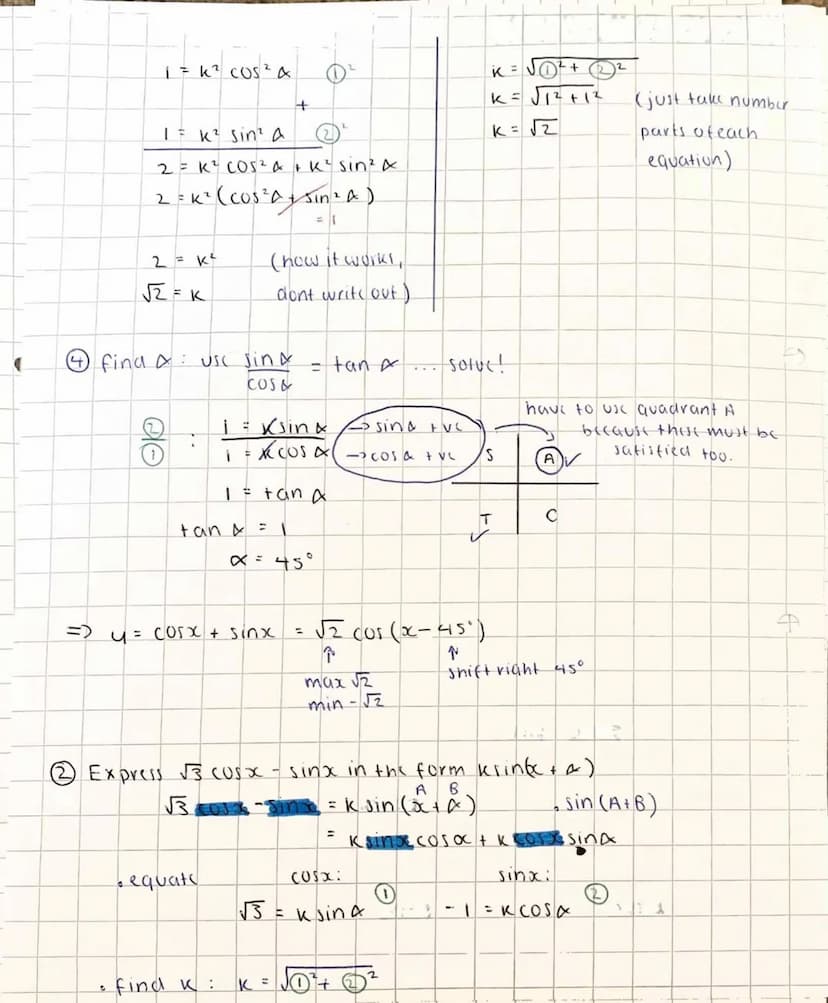 1 = k² cos² α ①²
+
1 = k² sin² α ②²
2 = k² cos² α + k² sin² α
2 = k² (cos² α + sin² α)
= 1
2 = k² (how it works,
√2 = k dont write out)
k = √①² + ②²
k = √1² + 1² (just take number
k = √2 parts of each
equation)
④ find α : use sinα/cosα = tan α ... solve!
②/① : 1 = k sin α → sinα +ve
1 = k cos α → cosα +ve
1 = tan α
tan α = 1
α = 45°
have to use quadrant A
because these must be
satisfied too.
S A ✓
T ✓ C
⇒ y = cosx + sinx = √2 cos (x - 45°)
↑ ↑
max √2 shift right 45°
min - √2
② Express √3 cosx - sinx in the form ksin(x + α)
A B
√3 cosx - sinx = k sin (x + α) . sin (A+B)
= k sinx cosα + k cosx sinα
. equate cosx: sinx:
√3 = k sin α ① - 1 = k cosα ②
. find k : k = √①² + ②²